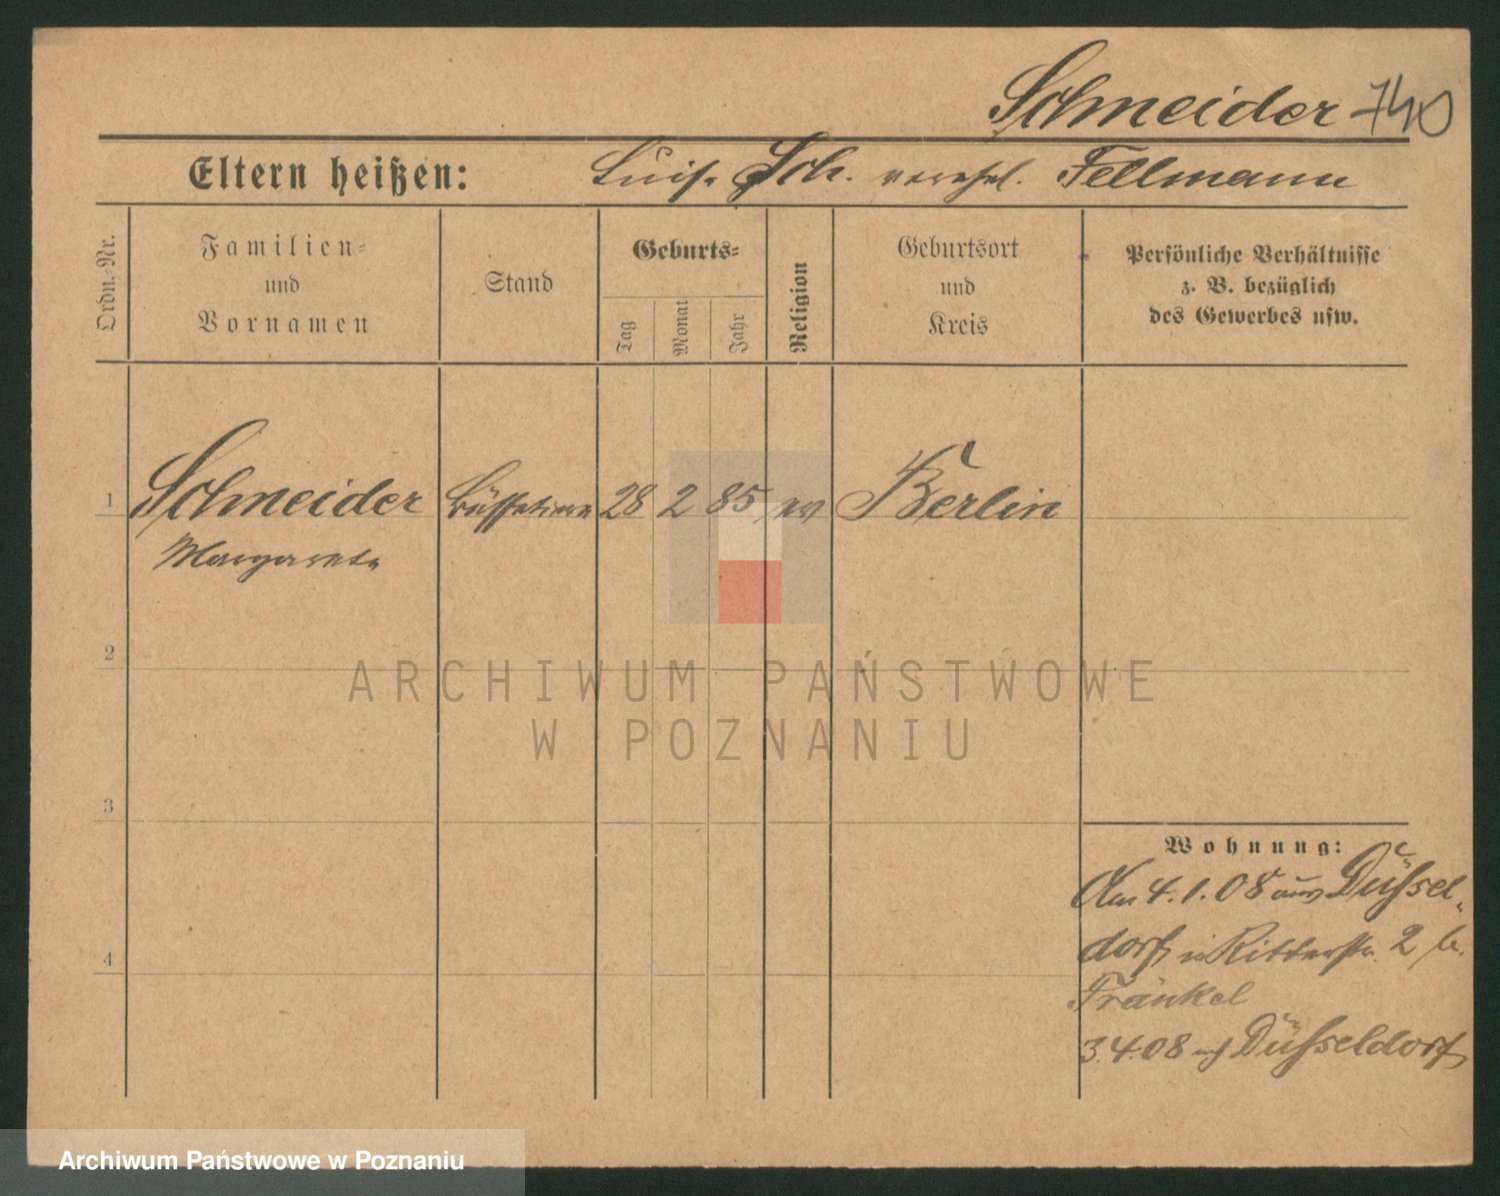 Schneider 740
Eltern heißen: Luise Sch. verehel. Fellmann
Ordn.-Nr.
Familien-
und
Vornamen
Stand
Geburts-
Tag
Monat
Jahr
Religion
Geburtsort
und
Kreis
Persönliche Verhältnisse
z. B. bezüglich
des Gewerbes usw.
1 Schneider Büffetiere 28 2 85 ev Berlin
Margarete
2
ARCHIWUM PAŃSTWOWE
W POZNANIU
3
Wohnung:
Am 4.1.08 aus Düssel-
dorf in Ritterstr. 2 b.
4
Fränkel
3.4.08 Düsseldorf
Archiwum Państwowe w Poznaniu